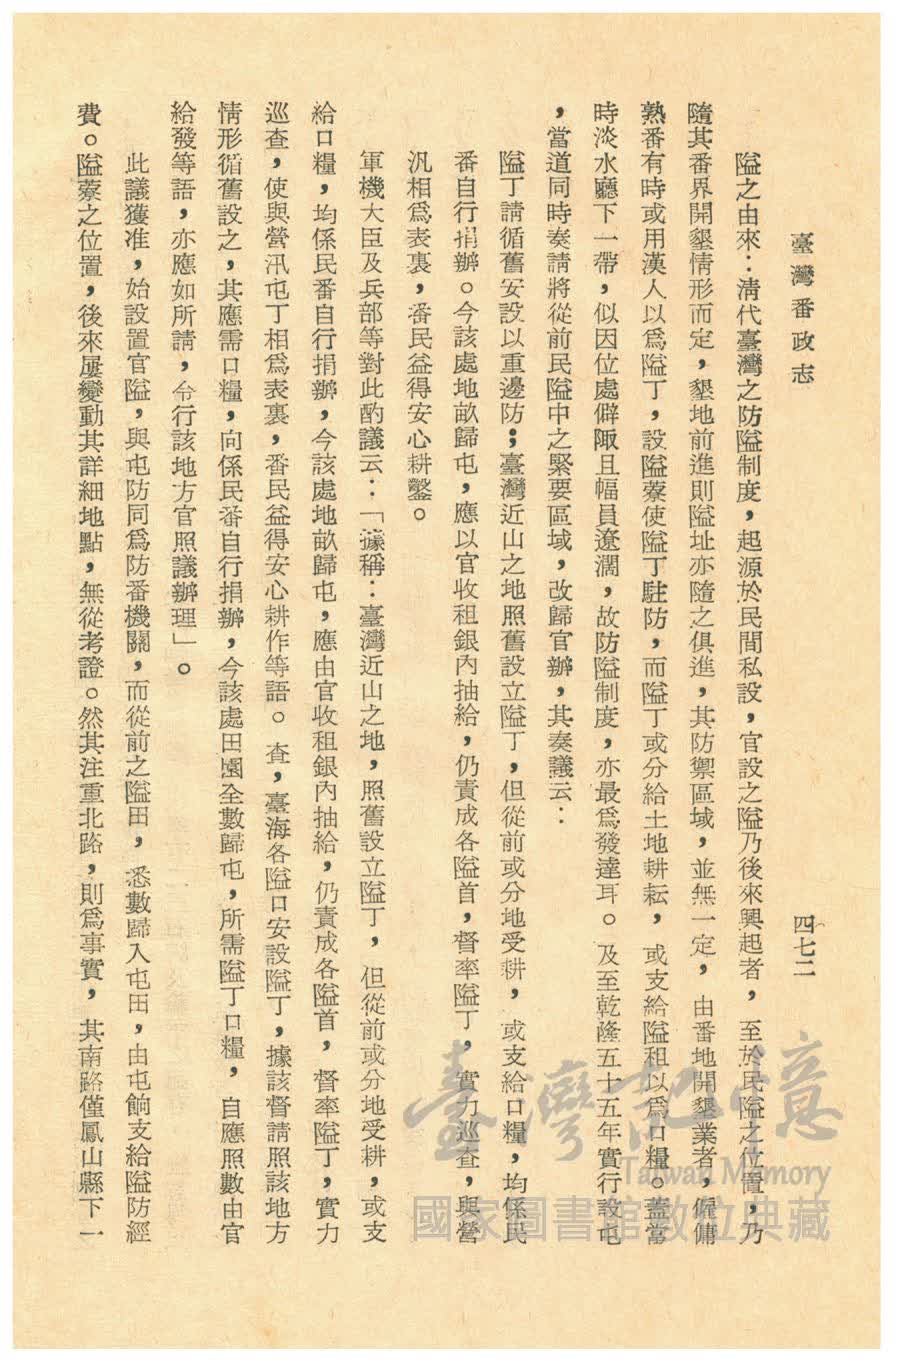 臺灣番政志
四七二
隘之由來：淸代臺灣之防隘制度，起源於民間私設，官設之隘乃後來興起者，至於民隘之位置，乃
隨其番界開墾情形而定，墾地前進則隘址亦隨之俱進，其防禦區域，並無一定，由番地開墾業者，僱傭
熟番有時或用漢人以爲隘丁，設隘藔使隘丁駐防，而隘丁或分給土地耕耘，或支給隘租以爲口糧。蓋當
時淡水廳下一帶，似因位處僻陬且幅員遼濶，故防隘制度，亦最爲發達耳。及至乾隆五十五年實行設屯
，當道同時奏請將從前民隘中之緊要區域，改歸官辦，其奏議云：
隘丁請循舊安設以重邊防；臺灣近山之地照舊設立隘丁，但從前或分地受耕，或支給口糧，均係民
番自行捐辦。今該處地畝歸屯，應以官收租銀內抽給，仍責成各隘首，督率隘丁，實力巡查，與營
汛相爲表裏，番民益得安心耕鑿。
軍機大臣及兵部等對此酌議云：「據稱：臺灣近山之地，照舊設立隘丁，但從前或分地受耕，或支
給口糧，均係民番自行捐辦，今該處地畝歸屯，應由官收租銀內抽給，仍責成各隘首，督率隘丁，實力
巡查，使與營汛屯丁相爲表裏，番民益得安心耕作等語。查，臺海各隘口安設隘丁，據該督請照該地方
情形循舊設之，其應需口糧，向係民番自行捐辦，今該處田園全數歸屯，所需隘丁口糧，自應照數由官
給發等語，亦應如所請，令行該地方官照議辦理」。
此議獲准，始設置官隘，與屯防同爲防番機關，而從前之隘田，悉數歸入屯田，由屯餉支給隘防經
費。隘藔之位置，後來屢變動其詳細地點，無從考證。然其注重北路，則爲事實，其南路僅鳳山縣下一
臺灣記憶
Taiwan Memory
國家圖書館數位典藏